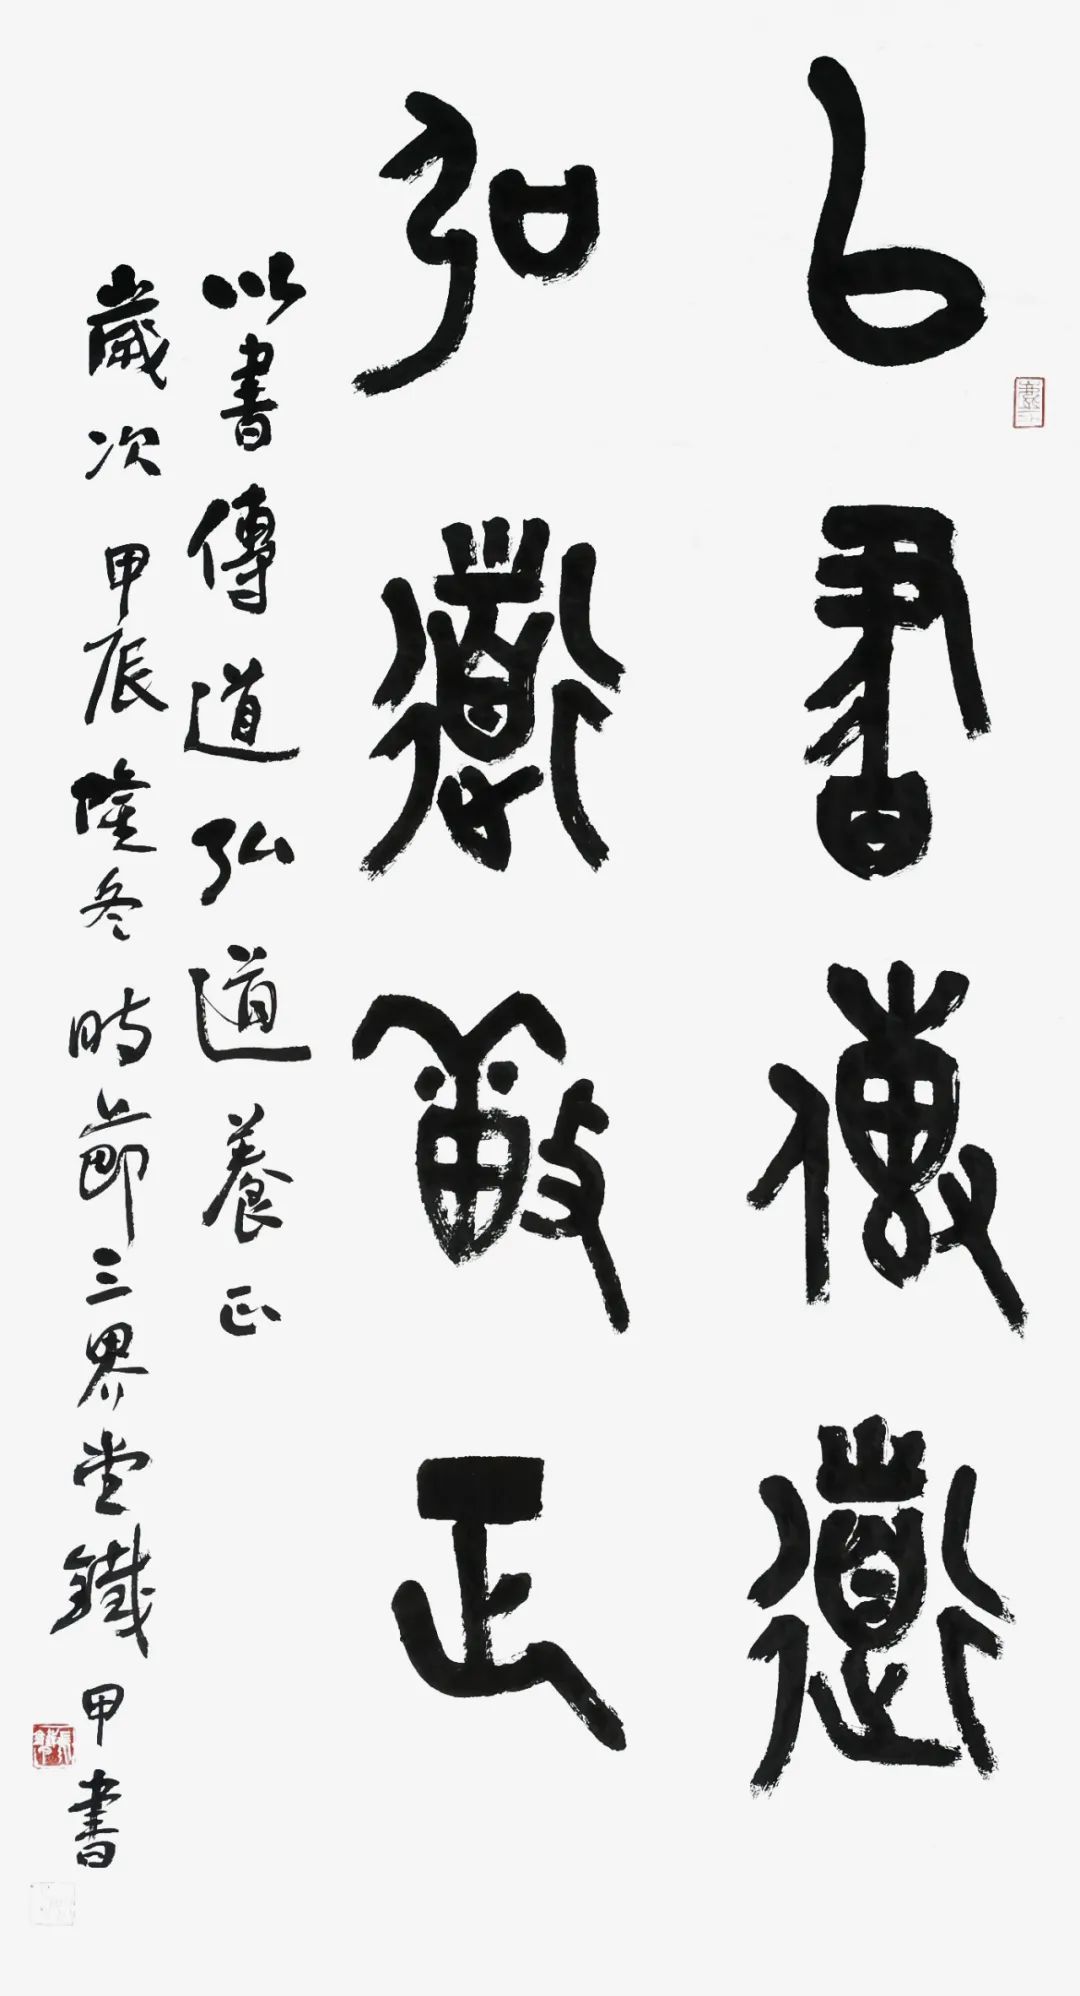 以書傳道
弘道養正
以書傳道弘道養正
歲次甲辰隆冬時節三界堂鐵甲書